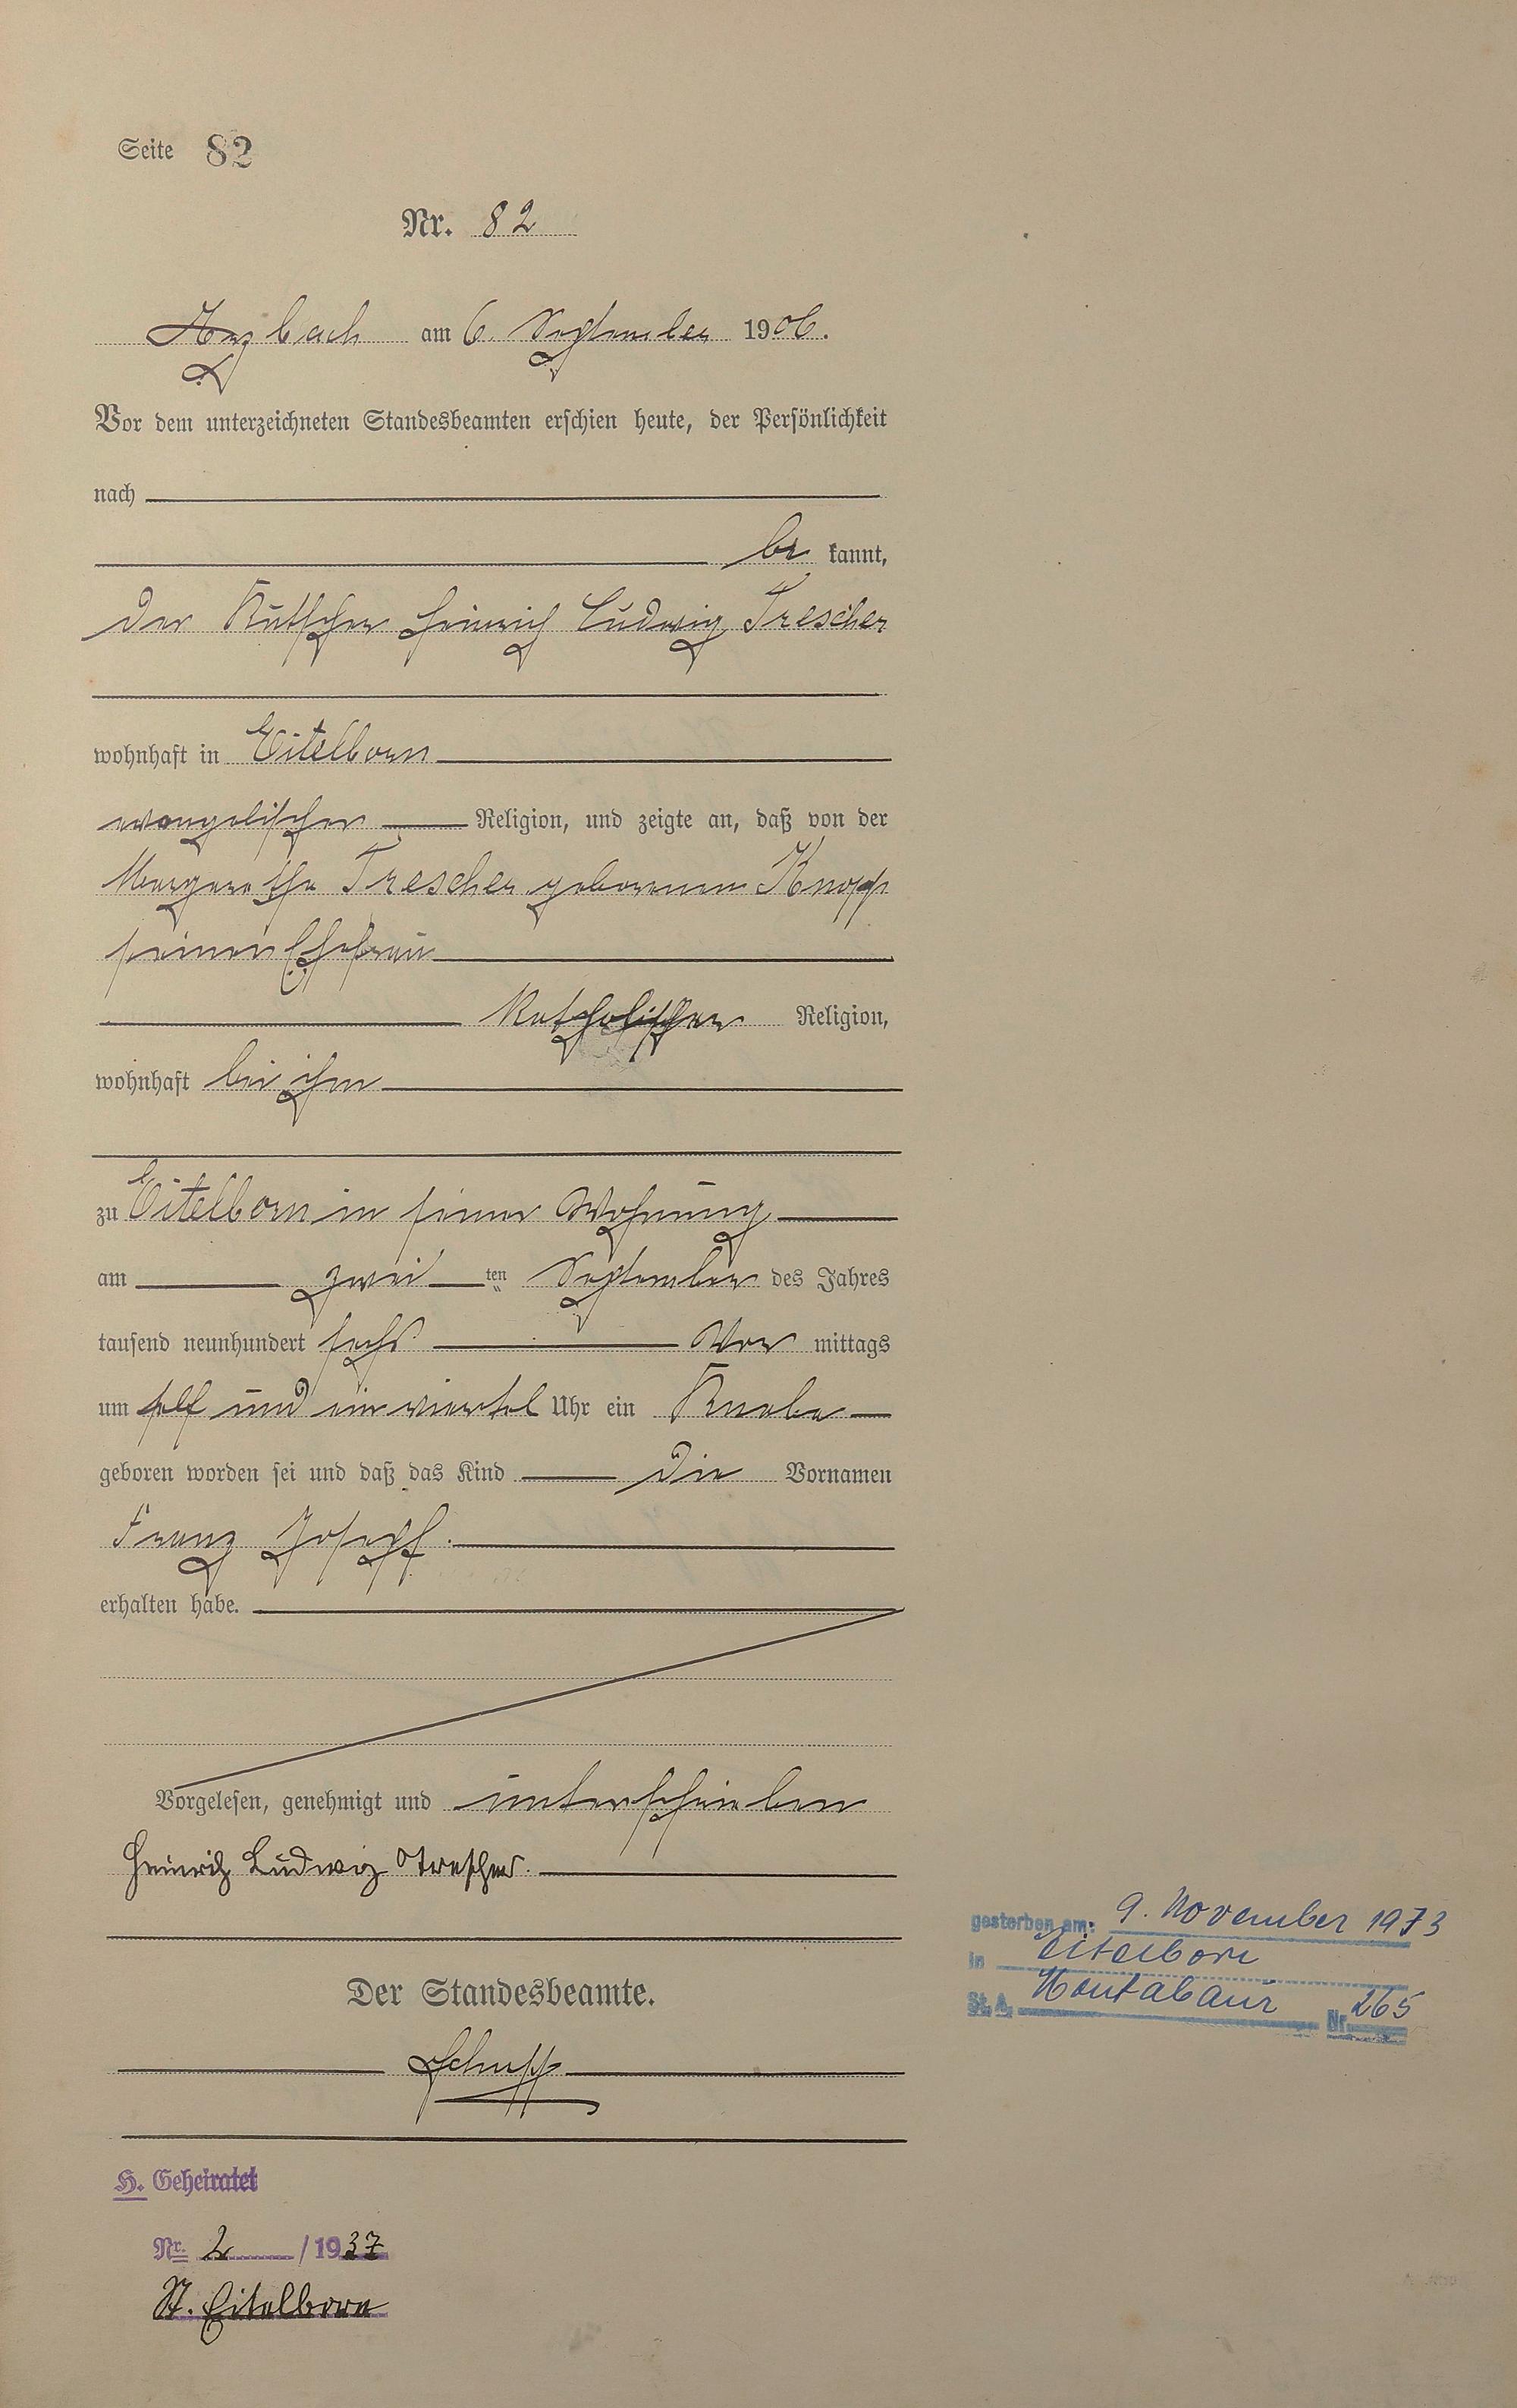 Seite 82
Nr. 82
Arzbach am 6. September 1906.
Vor dem unterzeichneten Standesbeamten erschien heute, der Persönlichkeit
nach
be kannt,
der Kutscher Heinrich Ludwig Trescher
wohnhaft in Eitelborn
evangelischer Religion, und zeigte an, daß von der
Margarethe Trescher geborenen Knopp
seiner Ehefrau
katholischer Religion,
wohnhaft bei ihm
zu Eitelborn in seiner Wohnung
am zwei ten September des Jahres
tausend neunhundert sechs Vor mittags
um elf und ein viertel Uhr ein Knabe
geboren worden sei und daß das Kind die Vornamen
Franz Joseph.
erhalten habe.
Vorgelesen, genehmigt und unterschrieben
Heinrich Ludwig Trescher.
Der Standesbeamte.
Schupp
H. Geheiratet
Nr. 2 / 1937
St. Eitelborn
gestorben am: 9. November 1973
in Eitelborn
St. A. Montabaur Nr. 265